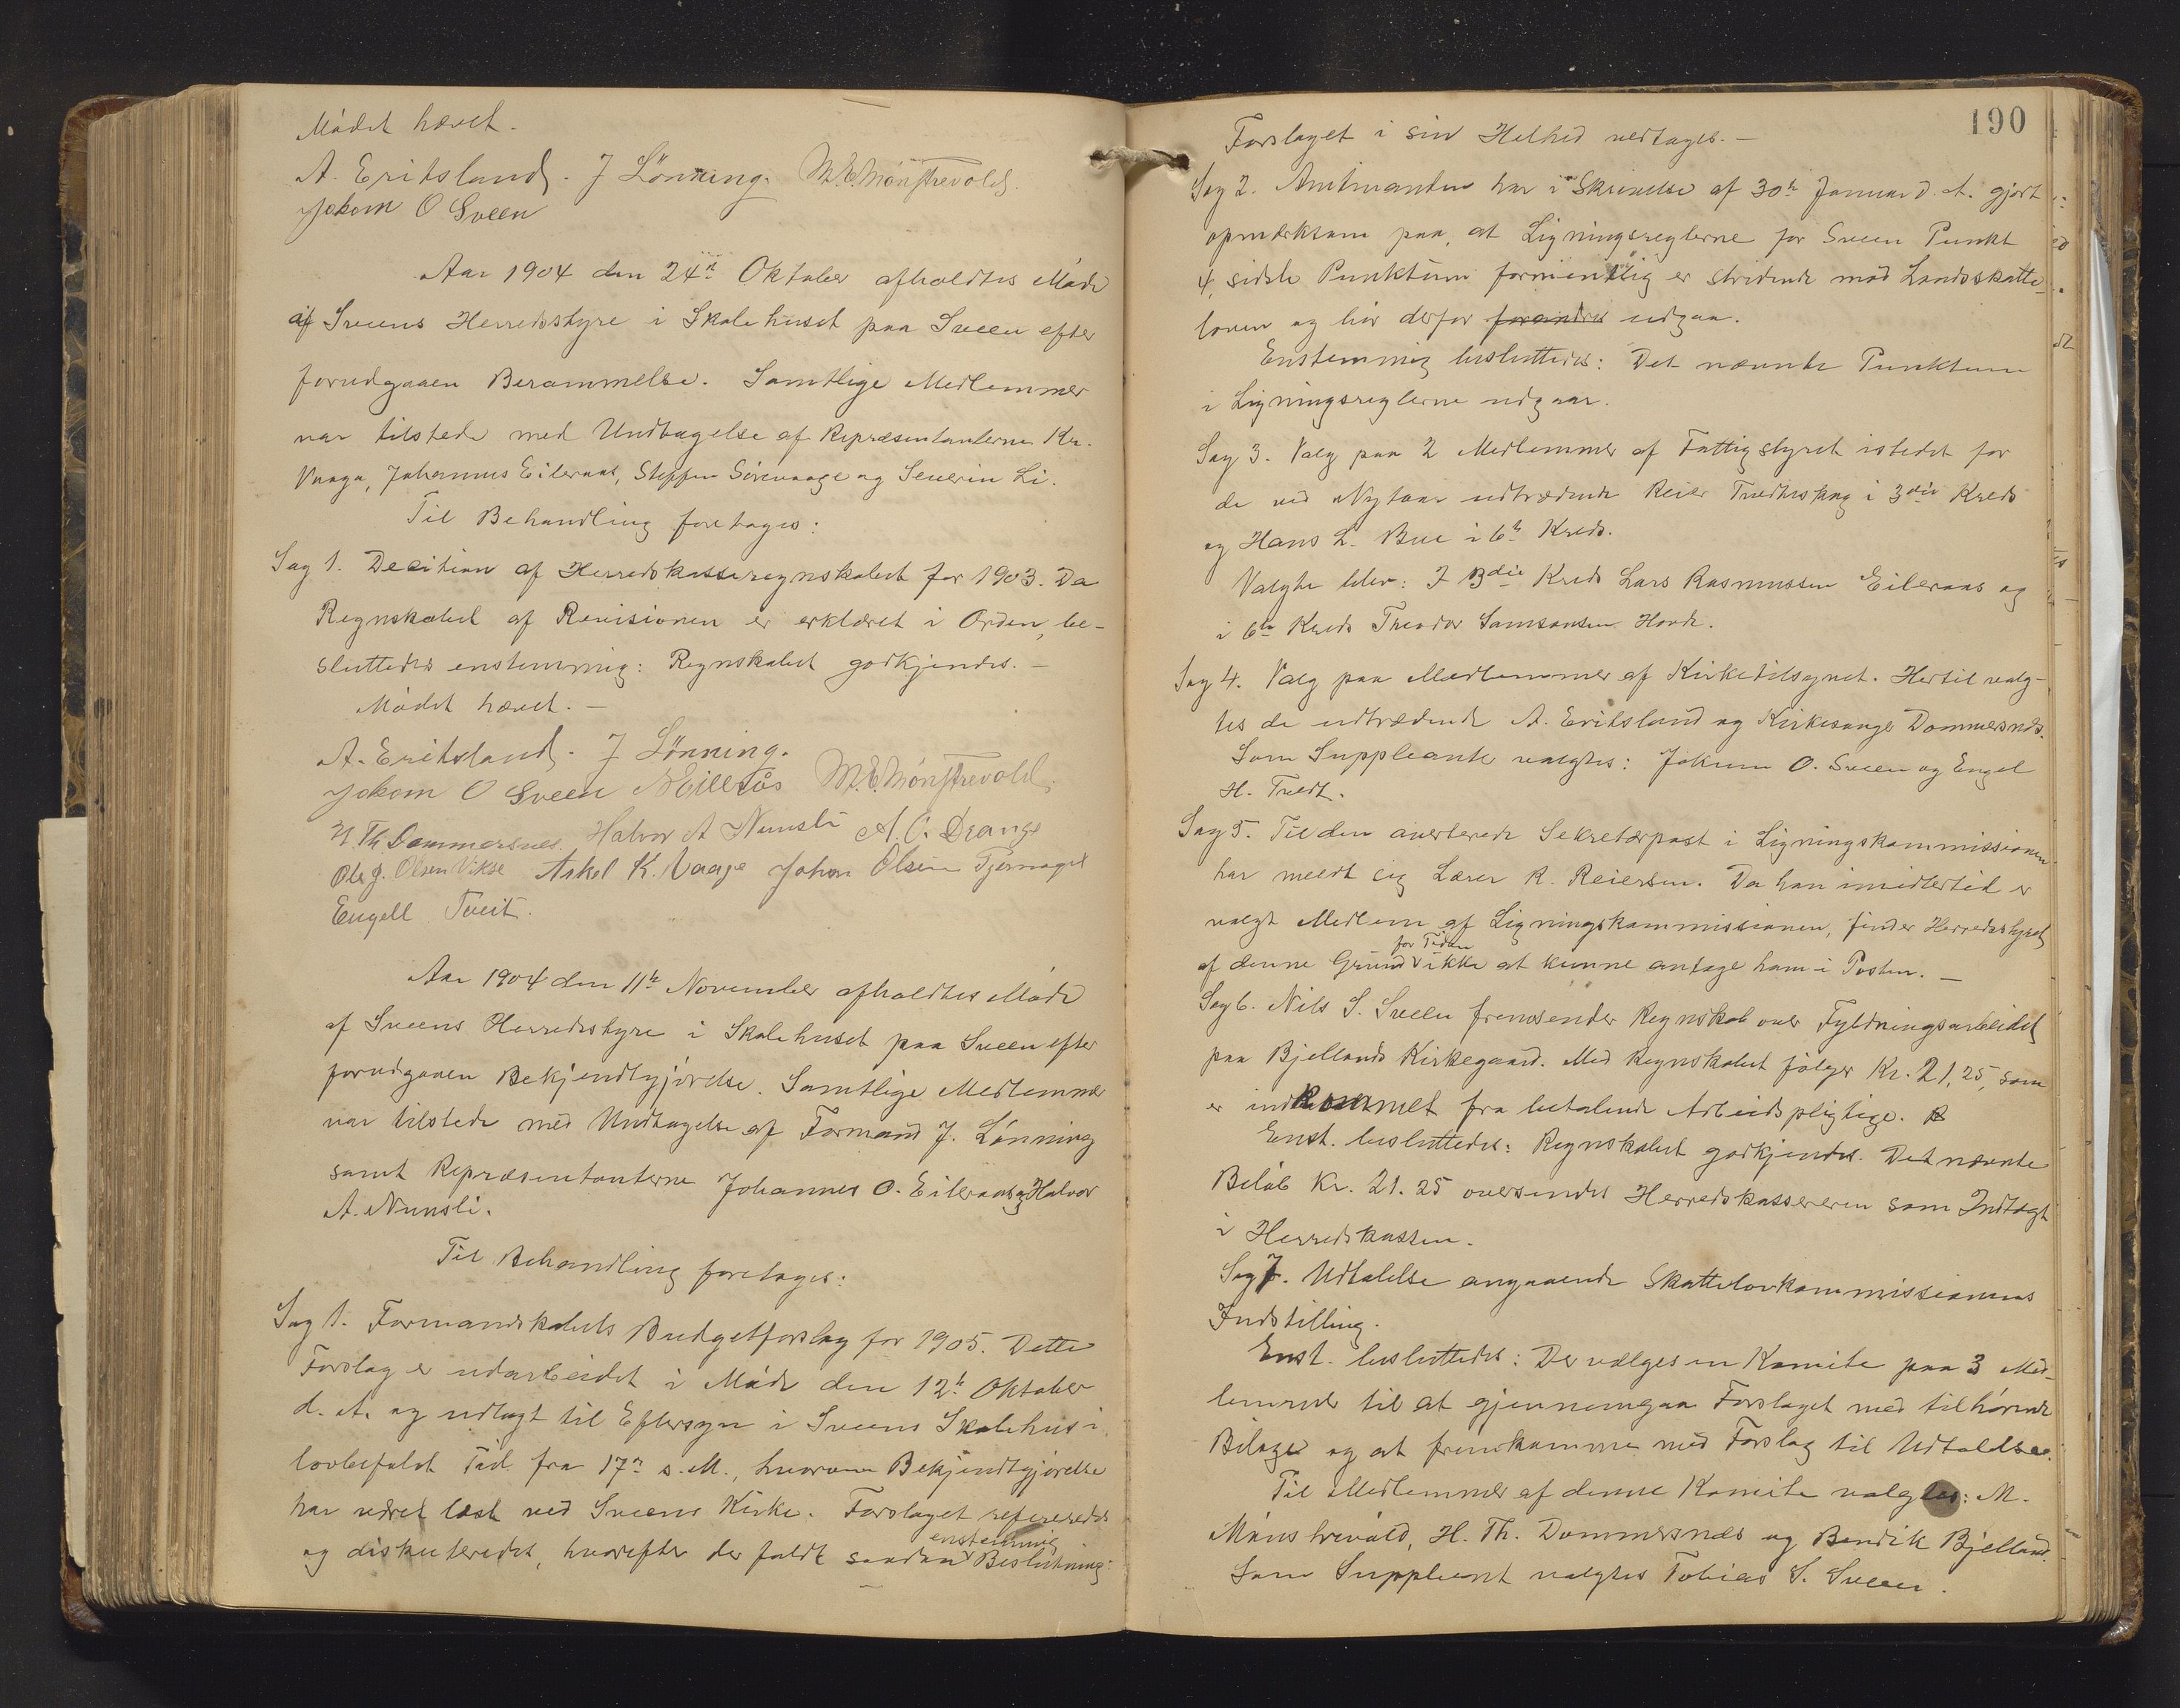 Mödet hævet.
A. Eritsland. J Lönning. M. E. Mönstrevold.
Jokom O Sveen
Aar 1904 den 24de Oktober afholdtes Möde
af Sveens Herredsstyre i Skolehuset paa Sveen efter
forudgaaen Berammelse. Samtlige Medlemmer
var tilstede med Undtagelse af Repræsentanterne Kr.
Vaaga, Johannes Eileraas, Steffen Sörvaage og Severin Li.
Til Behandling foretages:
Sag 1. Decition af Herredskasseregnskabet for 1903. Da
Regnskabet af Revisionen er erklæret i Orden, be-
sluttedes enstemmig: Regnskabet godkjendes. –
Mödet hævet. –
A. Eritsland. J Lönning.
Jokom O Sveen N Eilerås M. E. Mönstrevold.
H. Th. Dommersnes. Halvor A Nunsli A. O. Drange
Ole J. Olsen Vikse Askel K. Vaage Johan Olsen Tjernagel
Engell Tveit.
Aar 1904 den 11te November afholdtes Möde
af Sveens Herredsstyre i Skolehuset paa Sveen efter
forudgaaen Bekjendtgjörelse. Samtlige Medlemmer
var tilstede med Undtagelse af Formand J. Lönning
samt Repræsentanterne Johannes O. Eileraas og Halvor
A. Nunsli.
Til Behandling foretages:
Sag 1. Formandskabets Budgetforslag for 1905. Dette
Forslag er udarbeidet i Möde den 12te Oktober
d. A. og udlagt til Eftersyn i Sveens Skolehus i
lovbefalet Tid fra 17de s. M., hvorom Bekjendtgjörelse
har været læst ved Sveens Kirke. Forslaget refereredes
og diskuteredes, hvorefter der faldt saadan enstemmig Beslutning:
190
Forslaget i sin Helhed vedtages. –
Sag 2. Amtmanden har i Skrivelse af 30te Januar d. A. gjort
opmærksom paa, at Ligningsreglerne for Sveen Punkt
4, sidste Punktum formentlig er stridende mod Landsskatte-
loven og bör derfor forandres udgaa.
Enstemmig besluttedes: Det nævnte Punktum
i Ligningsreglerne udgaar.
Sag 3. Valg paa 2 Medlemmer af Fattigstyret istedet for
de ved Nytaar udtrædende Reier Tvedteskog i 3die Kreds
og Hans L. Bue i 6te Kreds.
Valgte blev: I 3die Kreds Lars Rasmussen Eileraas og
i 6te Kreds Theodor Samsonsen Hovde.
Sag 4. Valg paa Medlemmer af Kirketilsynet. Hertil valg-
tes de udtrædende A. Eritsland og Kirkesanger Dommersnæs.
Som Suppleanter valgtes: Jokum O. Sveen og Engel
H. Tvedt.
Sag 5. Til den averterede Sekretærpost i Ligningskommissionen
har meldt sig Lærer R. Reiersen. Da han imidlertid er
valgt Medlem af Ligningskommissionen, finder Herredsstyret
af denne Grund for Tiden ikke at kunne antage ham i Posten. –
Sag 6. Nils S. Sveen fremsender Regnskab over Fyldningsarbeidet
paa Bjellands Kirkegaard. Med Regnskabet fölger Kr. 21,25, som
er indkommet fra betalende Arbeidspligtige.
Enst. besluttedes: Regnskabet godkjendes. Det nævnte
Belöb Kr. 21.25 oversendes Herredskassereren som Indtægt
i Herredskassen.
Sag 7. Udtalelse angaaende Skattelovkommissionens
Indstilling.
Enst. besluttedes: Der vælges en Komite paa 3 Med-
lemmer til at gjennemgaa Forslaget med tilhörende
Bilage og at fremkomme med Forslag til Udtalelse.
Til Medlemmer af denne Komite valgtes: M.
Mönstrevold, H. Th. Dommersnæs og Bendik Bjelland.
Som Suppleant valgtes Tobias S. Sveen.